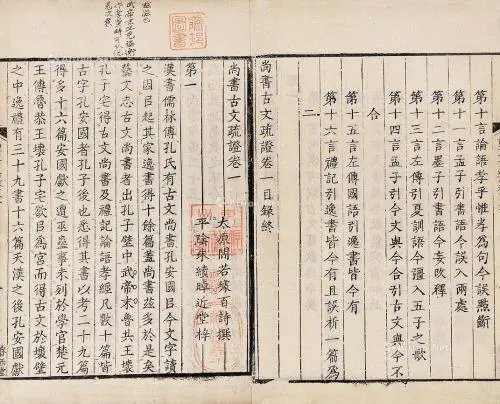 第十言論語孝乎惟孝為句今誤點斷
第十一言孟子引書語今誤入兩處
第十二言墨子引書語今妄改釋
第十三言左傳引夏訓語今彊入五子之歌
第十四言孟子引今文與今合引古文與今不
合
第十五言左傳國語引逸書皆今有
第十六言禮記引逸書皆今有且誤析一篇為
二
尚書古文疏證卷一目錄終
尚書古文疏證卷一
太原閻若璩百詩撰
平陰朱續晫近堂梓
第一
漢書儒林傳孔氏有古文尚書孔安國以今文字讀
之因以起其家逸書得十餘篇蓋尚書茲多於是矣
藝文志古文尚書者出孔子壁中武帝末魯共王壞
孔子宅得古文尚書及禮記論語孝經凡數十篇皆
古字孔安國者孔子後也悉得其書以考二十九篇
得多十六篇安國獻之遭巫蠱事未列於學官楚元
王傳魯恭王壞孔子宅欲以為宮而得古文於壞壁
之中逸禮有三十九書十六篇天漢之後孔安國獻